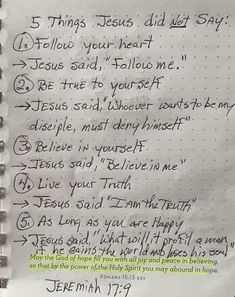 5 Things Jesus did Not Say:
1. Follow your heart
→ Jesus said, "Follow me."
2. BE true to yourself
→ Jesus said, "Whoever wants to be my
disciple, must deny himself."
3. Believe in yourself
→ Jesus said, "Believe in me"
4. Live your Truth
→ Jesus said "I am the Truth"
5. As Long as you are Happy
→ Jesus said "what will it profit a man
if he gains the world and loses his soul"
May the God of hope fill you with all joy and peace in believing,
so that by the power of the Holy Spirit you may abound in hope.
ROMANS 15:13 ESV
JEREMIAH 17:9